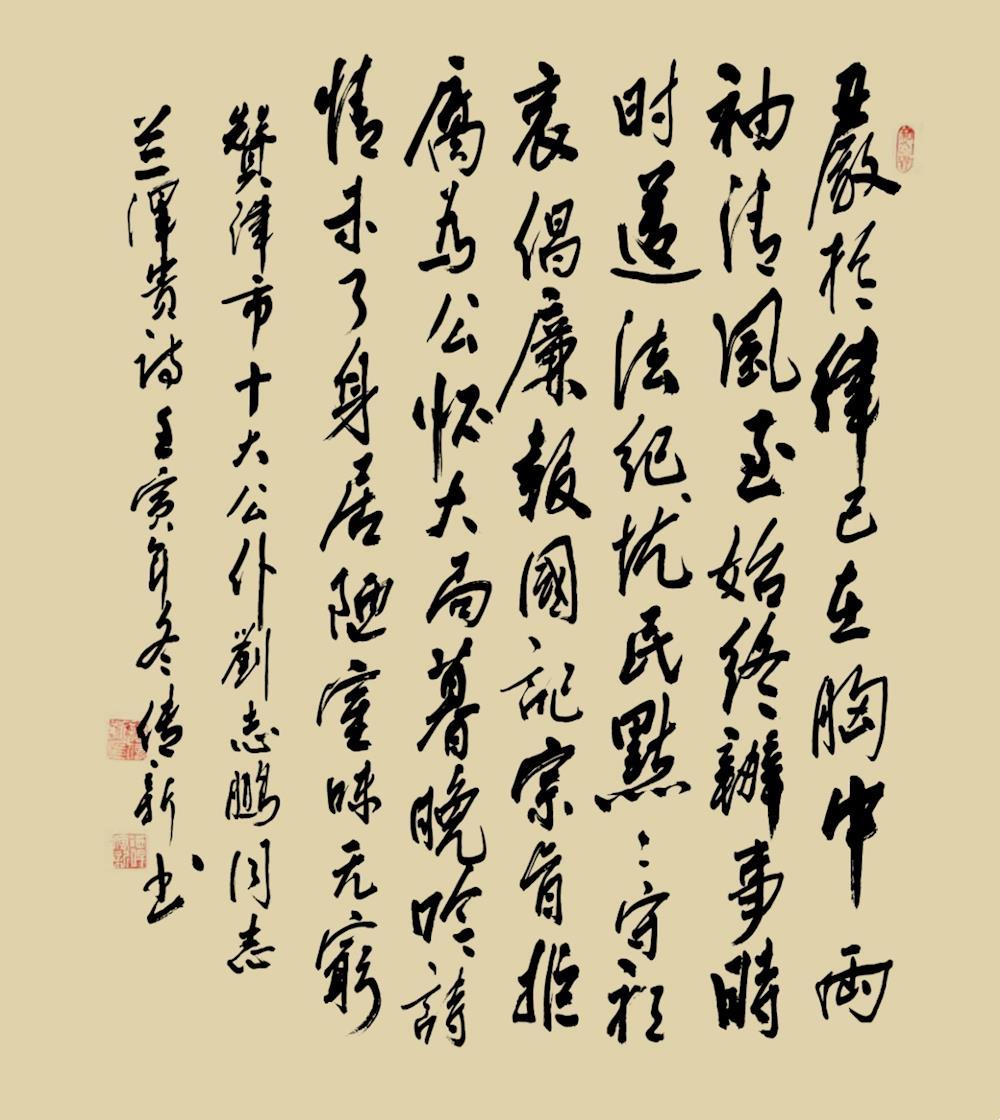 嚴於律己在胸中兩
袖清風至始終辦事時
时遵法紀民點々守初
衷倡廉報國記宗旨拒
腐为公怀大局暮晚吟詩
情未了身居陋室味无窮
贊津市十大公仆劉志鵬同志
兰澤贵诗壬寅年冬新书